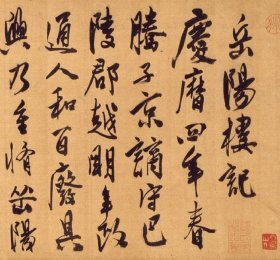 岳陽樓記
慶曆四年春
滕子京謫守巴
陵郡越明年政
通人和百廢具
興乃重脩岳陽